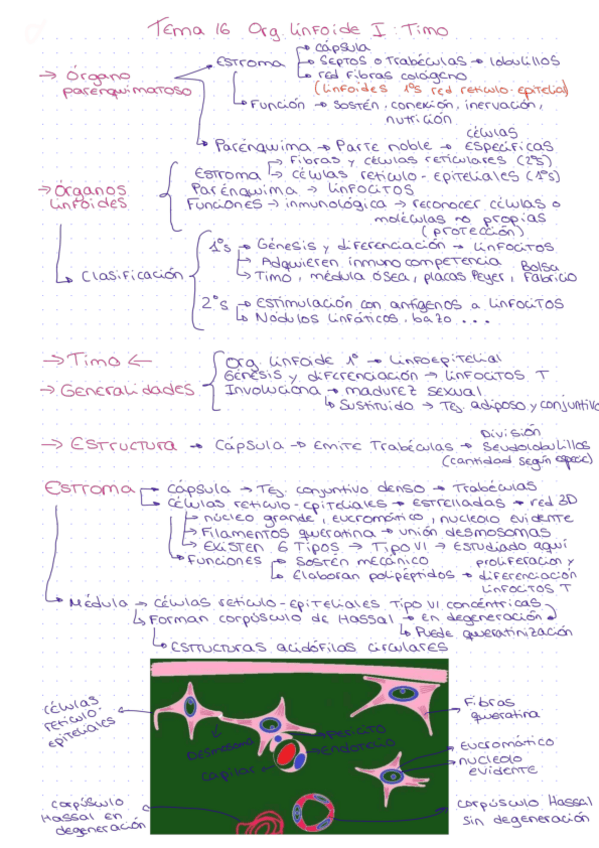 Tema 16 Org. linfoide I: Timo
→ Órgano parenquimatoso
Estroma
cápsula
Septos o Trabéculas → lobulillos
red fibras colágeno
(linfoides 1ºs red retículo-epitelial)
Función → Sostén, conexión, inervación, nutrición
Parénquima → Parte noble → células específicas
→ Órganos linfoides
Estroma
Fibras y células reticulares (2ºs)
células retículo-epiteliales (1ºs)
Parénquima → linfocitos
Funciones → inmunológica → reconocer células o
moléculas no propias
(protección)
Clasificación
1ºs → Génesis y diferenciación → linfocitos
Adquieren inmunocompetencia
Timo, médula ósea, placas Peyer, Bolsa Fabricio
2ºs → Estimulación con antígenos a linfocitos
Nódulos linfáticos, bazo...
→ Timo ←
→ Generalidades
Org. linfoide 1º → linfoepitelial
Génesis y diferenciación → linfocitos T
Involuciona → madurez sexual
Sustituido → Tej. adiposo y conjuntivo
→ Estructura → Cápsula → Emite Trabéculas → División Seudolobulillos
(cantidad según especie)
Estroma
cápsula → Tej. conjuntivo denso → Trabéculas
Células retículo-epiteliales → estrelladas → red 3D
núcleo grande, eucromático, nucleolo evidente
Filamentos queratina → unión desmosomas
Existen 6 Tipos → Tipo VI → Estudiado aquí
Funciones
Sostén mecánico
Elaboran polipéptidos → proliferación y
diferenciación
linfocitos T
Médula → Células retículo-epiteliales Tipo VI concéntricas
Forman corpúsculo de Hassal → en degeneración
Puede queratinización
Estructuras acidófilas circulares
células
retículo-
epiteliales
Desmosoma
Pericito
Endotelio
Capilar
Fibras
queratina
Eucromático
nucleolo
evidente
corpúsculo
Hassal en
degeneración
corpúsculo Hassal
sin degeneración